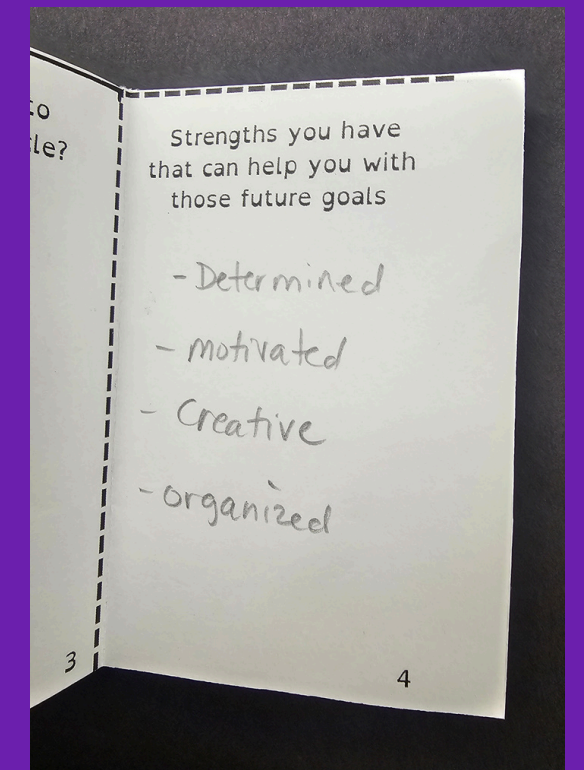 to
cle?
Strengths you have
that can help you with
those future goals
- Determined
- motivated
- Creative
- organized
3
4